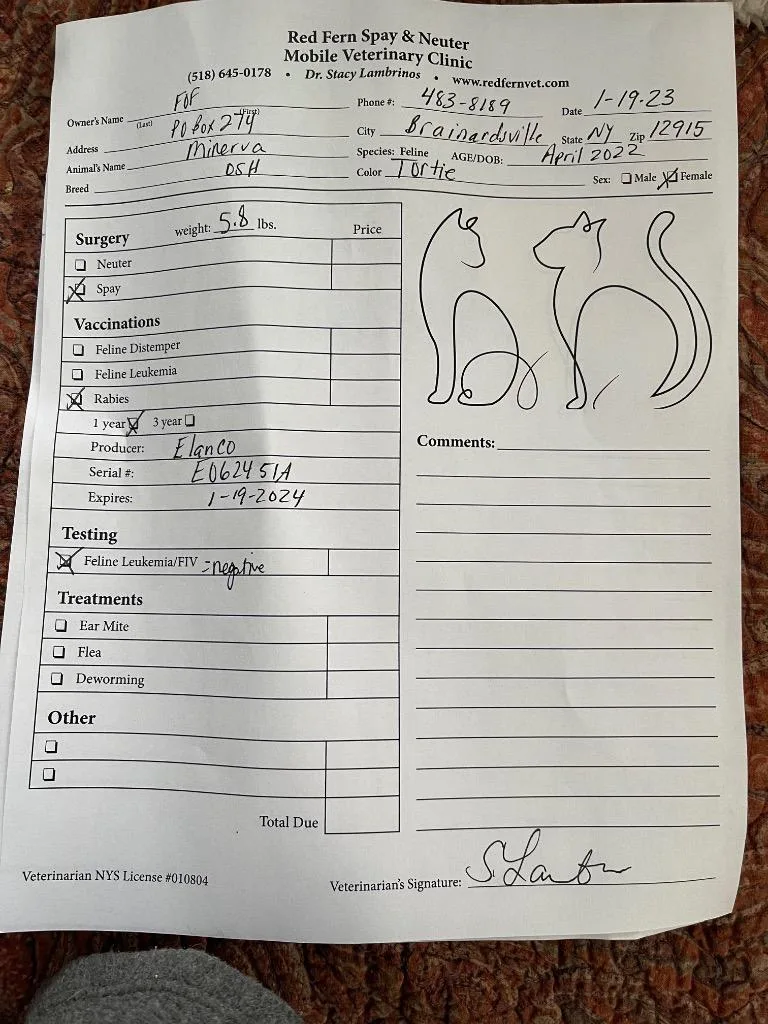 Red Fern Spay & Neuter
Mobile Veterinary Clinic
(518) 645-0178 • Dr. Stacy Lambrinos • www.redfernvet.com
Owner's Name FOF Phone #: 483-8189 Date 1-19-23
(Last) (First)
Address PO Box 274 City Brainardsville State NY Zip 12915
Animal's Name Minerva Species: Feline AGE/DOB: April 2022
Breed DSH Color Tortie Sex: ☐ Male ☒ Female
Surgery weight: 5.8 lbs. Price
☐ Neuter
☒ Spay
Vaccinations
☐ Feline Distemper
☐ Feline Leukemia
☒ Rabies
1 year ☒ 3 year ☐
Producer: Elanco
Serial #: E062451A
Expires: 1-19-2024
Testing
☒ Feline Leukemia/FIV = negative
Treatments
☐ Ear Mite
☐ Flea
☐ Deworming
Other
☐
☐
Total Due
Comments:
Veterinarian NYS License #010804
Veterinarian's Signature: